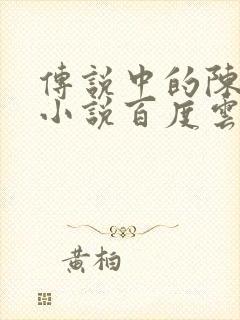 傳說中的陳
小說百度雲
黃柏